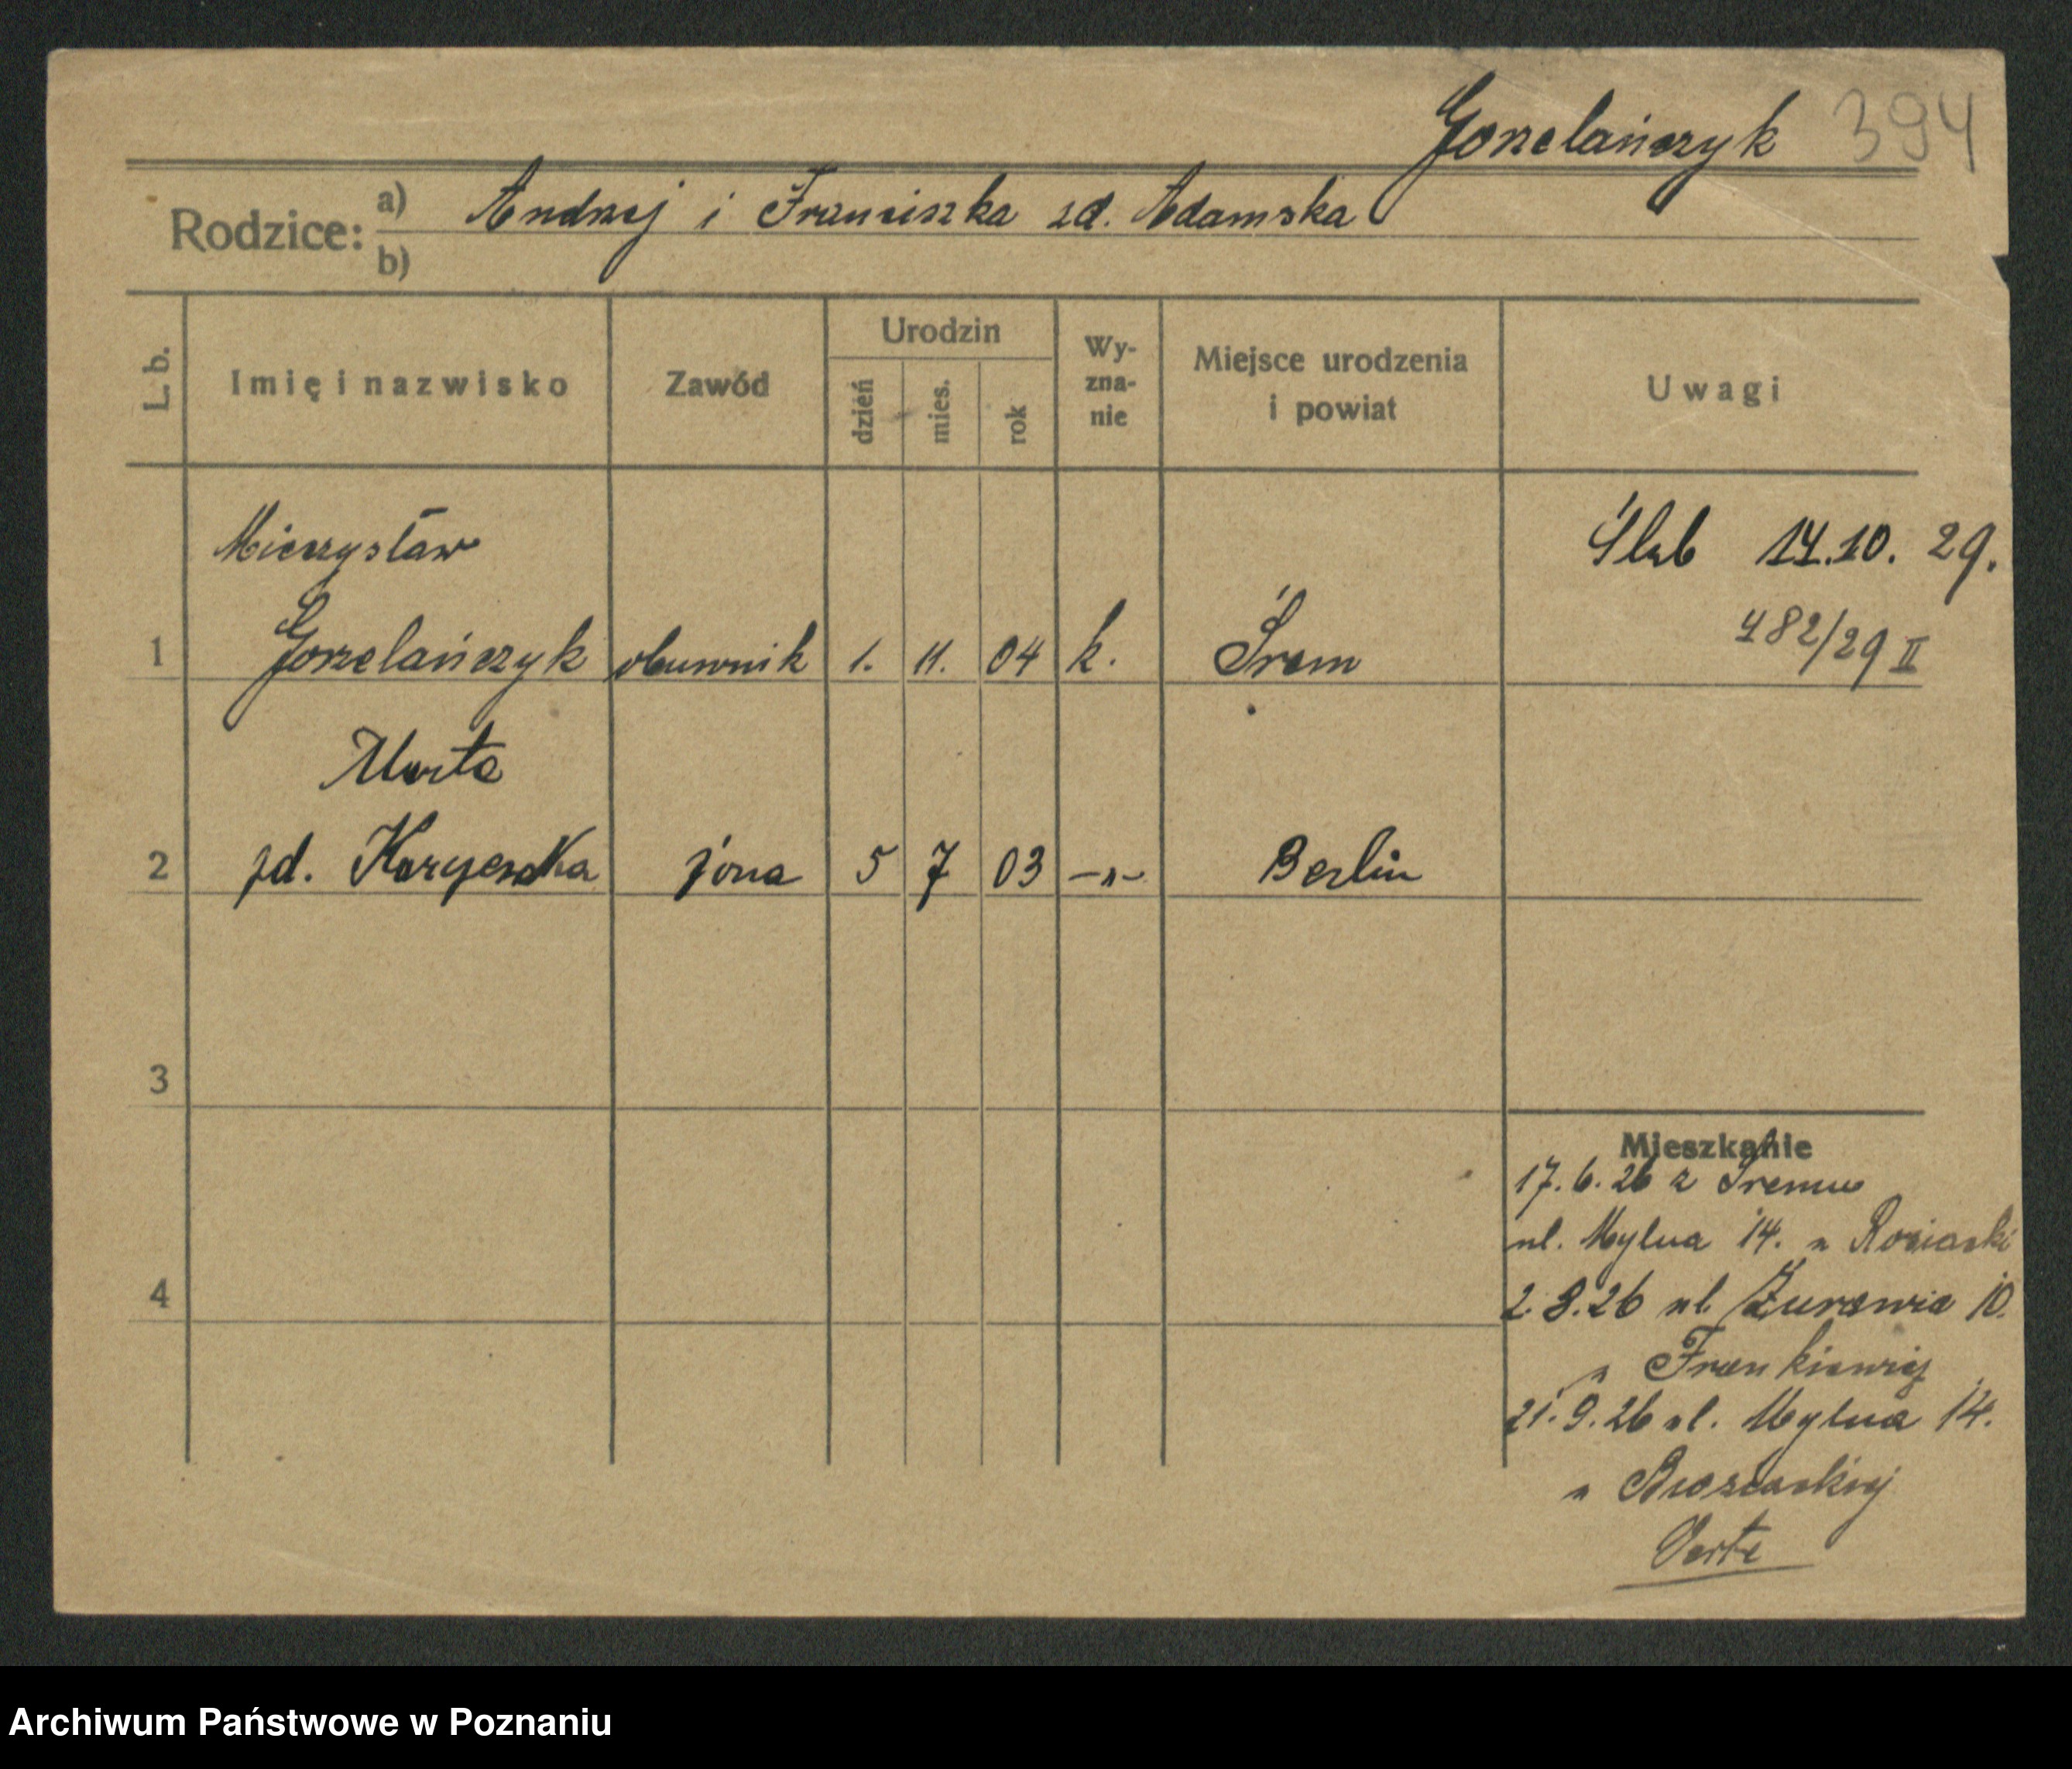 Gorzelańczyk 394
Rodzice: a) Andrzej i Franciszka zd. Adamska
b)
L. b. Imię i nazwisko Zawód Urodzin dzień mies. rok Wy-zna-nie Miejsce urodzenia i powiat Uwagi
Mieczysław Ślub 14.10. 29.
482/29 II
1 Gorzelańczyk obuwnik 1. 11. 04 k. Śrem
Marta
2 zd. żona 5 7 03 -"- Berlin
3
Mieszkanie
17.6.26 z Śremu
ul. Mylna 14. u
4
2.8.26 ul Żurawia 10.
u Frankiewicz
21.9.26 ul. Mylna 14.
u
Verte
Archiwum Państwowe w Poznaniu